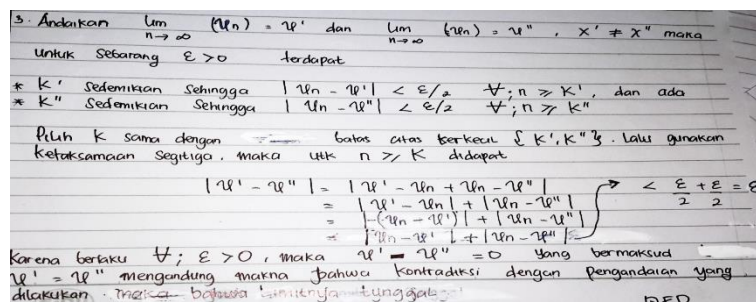 3. Andaikan lim n→∞ (xn) = x' dan lim n→∞ (xn) = x" , x' ≠ x" maka
untuk sebarang ε > 0 terdapat
* K' sedemikian sehingga | xn - x' | < ε/2 ∀; n ≥ K', dan ada
* K" sedemikian sehingga | xn - x" | < ε/2 ∀; n ≥ K"
Pilih K sama dengan batas atas terkecil { K', K" }. Lalu gunakan
ketaksamaan segitiga. maka utk n ≥ K didapat
| x' - x" | = | x' - xn + xn - x" | < ε/2 + ε/2 = ε
= | x' - xn | + | xn - x" |
= |-(xn - x')| + | xn - x" |
= | xn - x' | + | xn - x" |
Karena berlaku ∀; ε > 0, maka x' - x" = 0 yang bermaksud
x' = x" mengandung makna bahwa kontradiksi dengan pengandaian yang
dilakukan. maka bahwa limitnya tunggal
QED